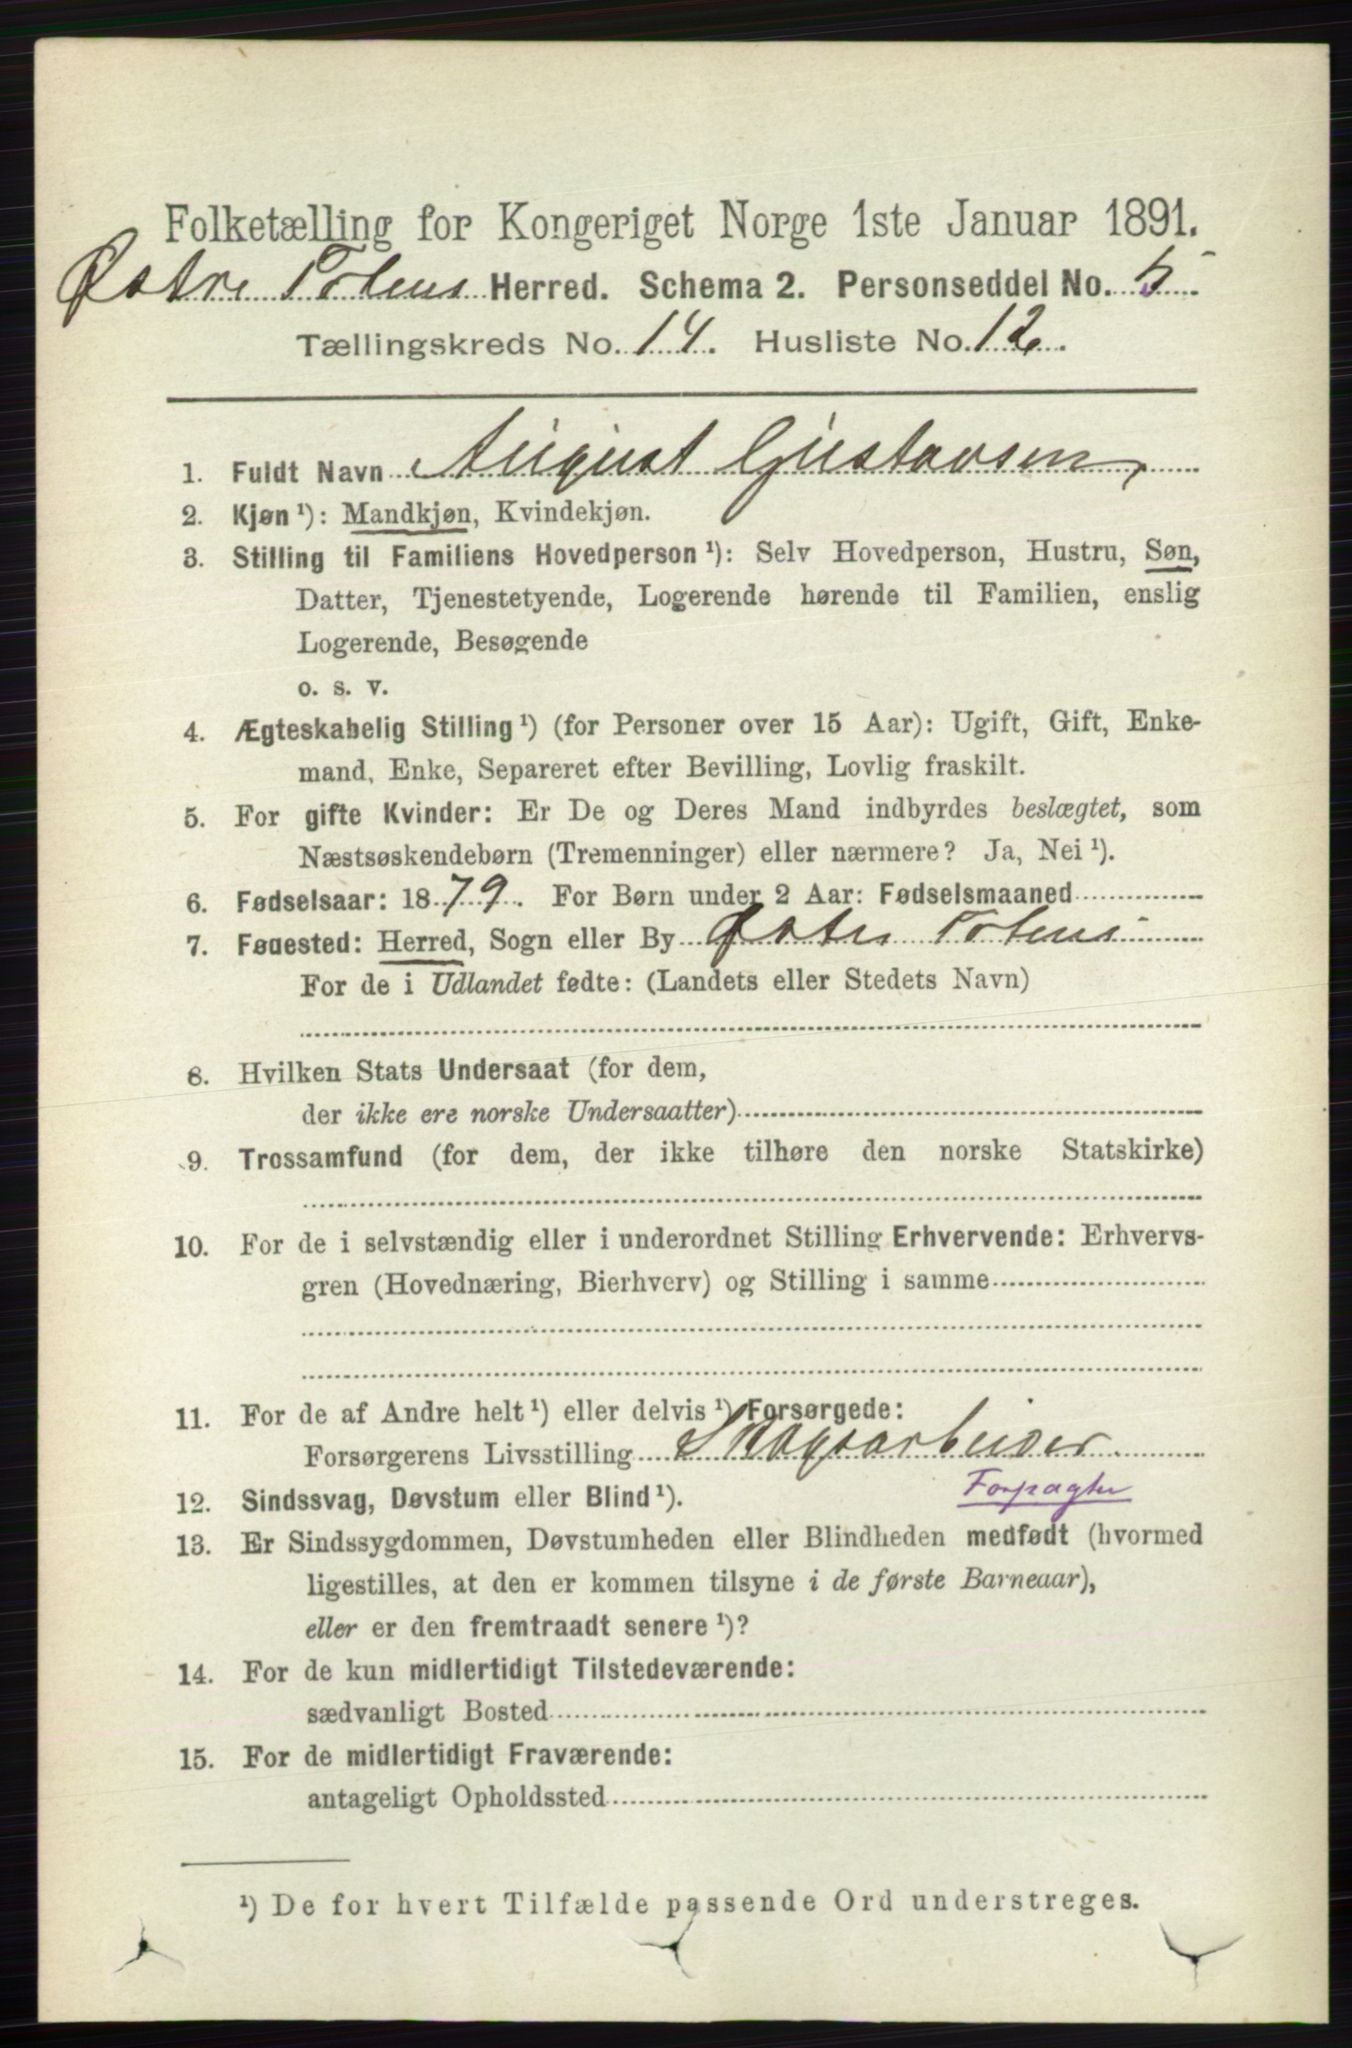 Folketælling for Kongeriget Norge 1ste Januar 1891.
Østre Totens Herred. Schema 2. Personseddel No. 5.
Tællingskreds No. 14. Husliste No. 12.
1. Fuldt Navn August Gustavsen,
2. Kjøn¹): Mandkjøn, Kvindekjøn.
3. Stilling til Familiens Hovedperson¹): Selv Hovedperson, Hustru, Søn,
Datter, Tjenestetyende, Logerende hørende til Familien, enslig
Logerende, Besøgende
o. s. v.
4. Ægteskabelig Stilling¹) (for Personer over 15 Aar): Ugift, Gift, Enke-
mand, Enke, Separeret efter Bevilling, Lovlig fraskilt.
5. For gifte Kvinder: Er De og Deres Mand indbyrdes beslægtet, som
Næstsøskendebørn (Tremenninger) eller nærmere? Ja, Nei¹).
6. Fødselsaar: 1879. For Børn under 2 Aar: Fødselsmaaned
7. Fødested: Herred, Sogn eller By Østre Totens
For de i Udlandet fødte: (Landets eller Stedets Navn)
8. Hvilken Stats Undersaat (for dem,
der ikke ere norske Undersaatter)
9. Trossamfund (for dem, der ikke tilhøre den norske Statskirke)
10. For de i selvstændig eller i underordnet Stilling Erhvervende: Erhvervs-
gren (Hovednæring, Bierhverv) og Stilling i samme
11. For de af Andre helt¹) eller delvis¹) Forsørgede:
Forsørgerens Livsstilling Skogsarbeider
Forpagter
12. Sindssvag, Døvstum eller Blind¹).
13. Er Sindssygdommen, Døvstumheden eller Blindheden medfødt (hvormed
ligestilles, at den er kommen tilsyne i de første Barneaar),
eller er den fremtraadt senere¹)?
14. For de kun midlertidigt Tilstedeværende:
sædvanligt Bosted
15. For de midlertidigt Fraværende:
antageligt Opholdssted
¹) De for hvert Tilfælde passende Ord understreges.